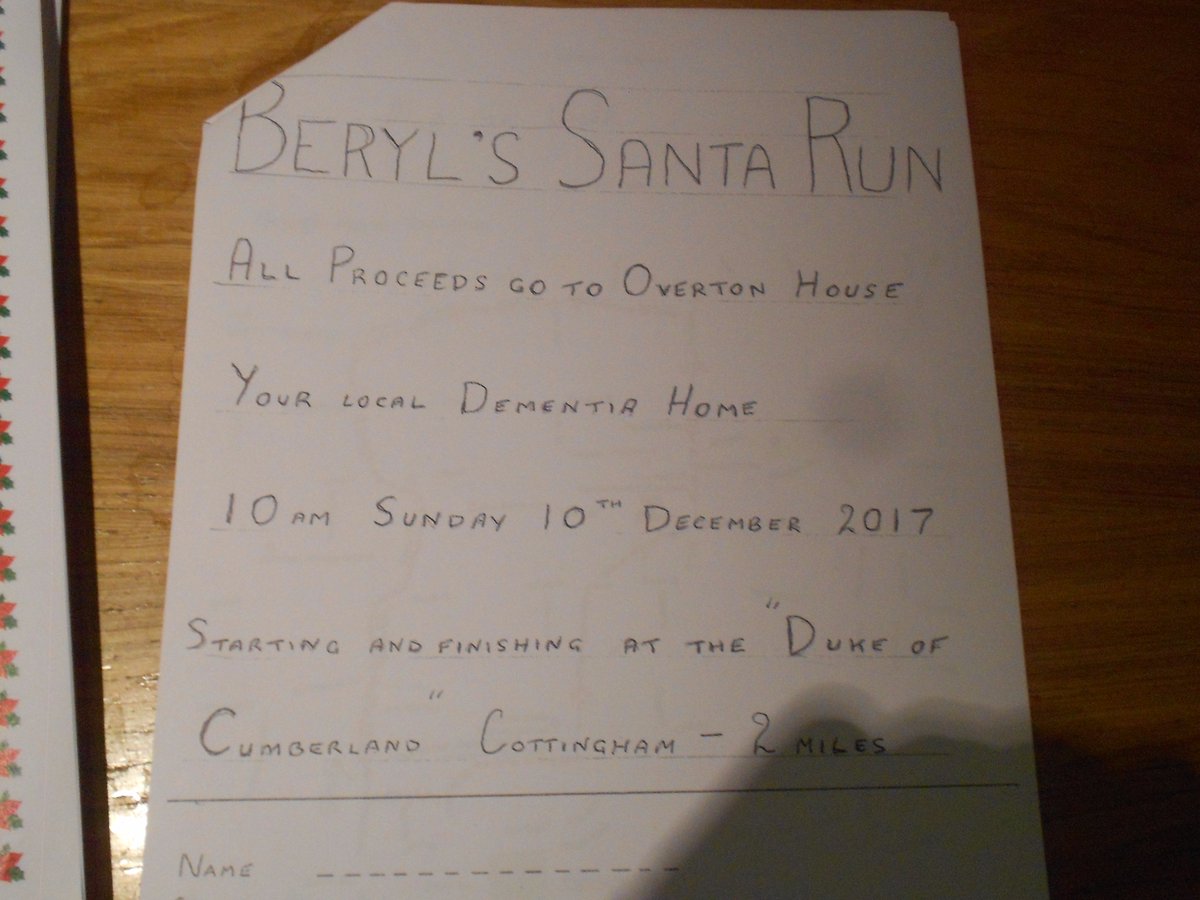 BERYL'S SANTA RUN
ALL PROCEEDS GO TO OVERTON HOUSE
YOUR LOCAL DEMENTIA HOME
10 AM SUNDAY 10TH DECEMBER 2017
STARTING AND FINISHING AT THE "DUKE OF
CUMBERLAND" COTTINGHAM - 2 MILES
NAME _ _ _ _ _ _ _ _ _ _ _ _ _ _